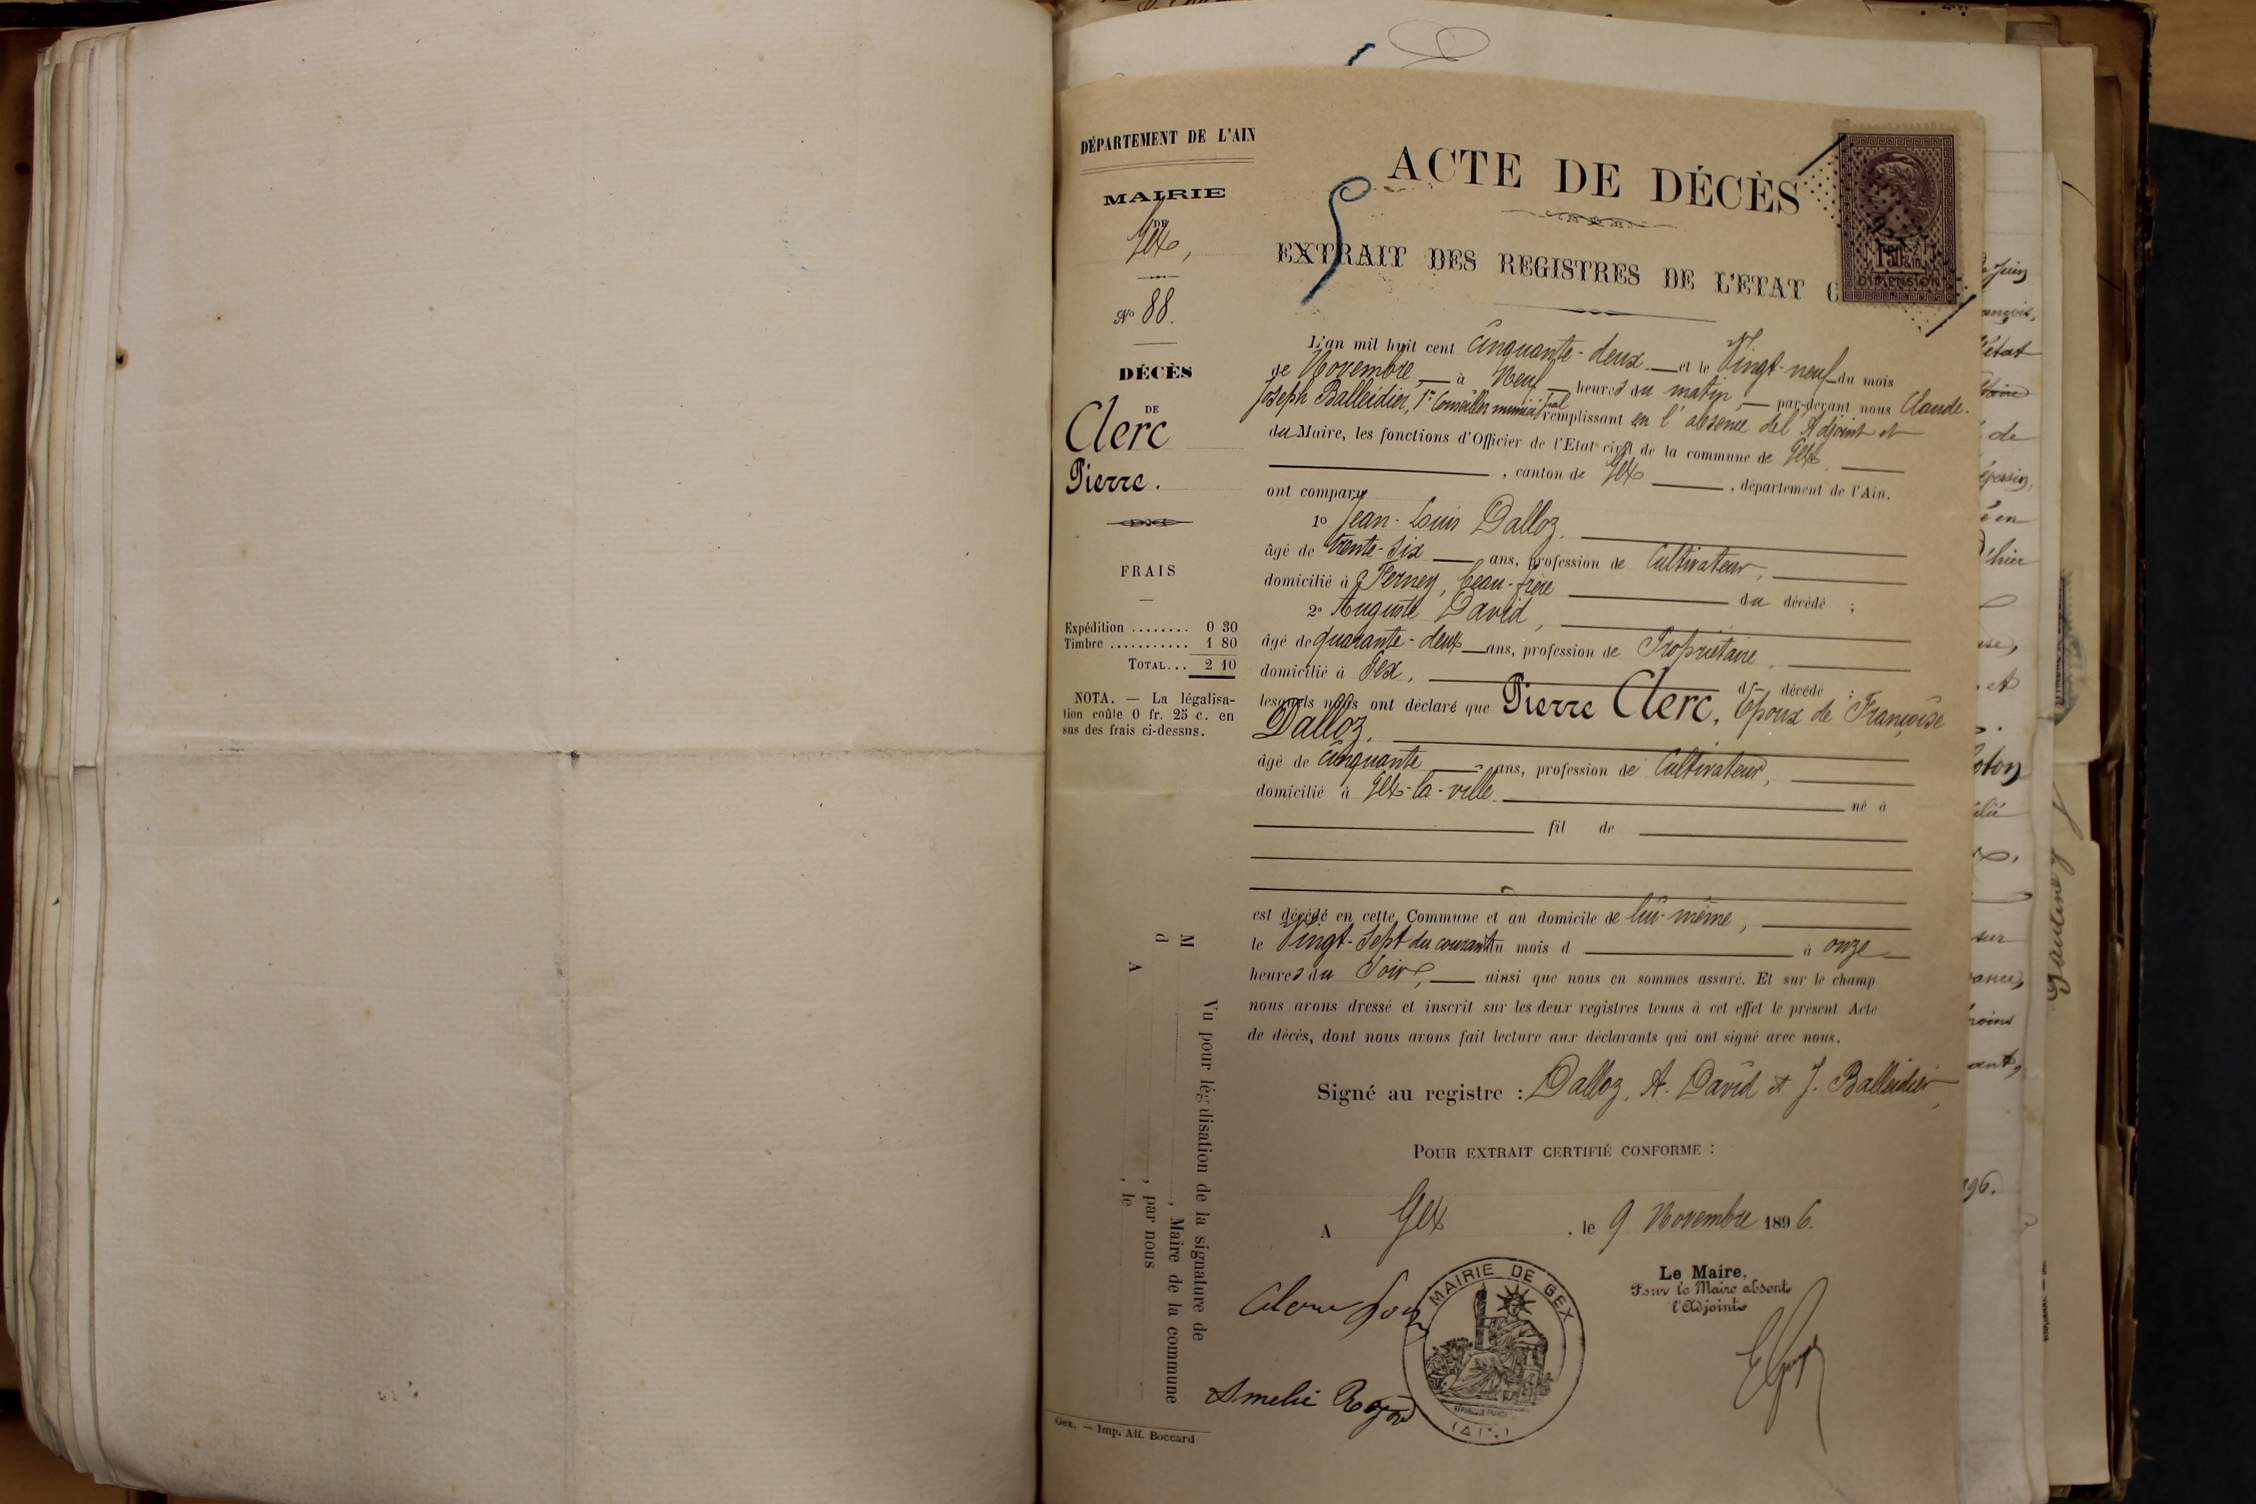 DÉPARTEMENT DE L'AIN
MAIRIE
DE
Gex,
No 88.
DÉCÈS
DE
Clerc
Pierre.
FRAIS
Expédition ........ 0 30
Timbre ........... 1 80
TOTAL... 2 10
NOTA. — La légalisa-
tion coûte 0 fr. 25 c. en
sus des frais ci-dessus.
Vu pour légalisation de la signature de
M , Maire de la commune
d , par nous
A , le
Gex. — Imp. Alf. Boccard
ACTE DE DÉCÈS
EXTRAIT DES REGISTRES DE L'ETAT C
1f50
DIMENSION
L'an mil huit cent cinquante-deux et le Vingt-neuf du mois
de Novembre, à Neuf heures du matin, par-devant nous Claude-
Joseph Balleidier, 1er Conseiller municipal remplissant en l'absence de l'Adjoint et
du Maire, les fonctions d'Officier de l'Etat civil de la commune de Gex
, canton de Gex , département de l'Ain.
ont comparu
1o Jean-Louis Dalloz.
âgé de trente-six ans, profession de Cultivateur,
domicilié à Ferney, beau-frère du décédé ;
2o Auguste David,
âgé de quarante-deux ans, profession de Propriétaire,
domicilié à Gex, d décédé ;
lesquels nous ont déclaré que Pierre Clerc, Epoux de Françoise
Dalloz,
âgé de cinquante ans, profession de Cultivateur,
domicilié à Gex-la-ville né à
fil de
est décédé en cette Commune et au domicile de lui-même,
le Vingt-sept du courant du mois d à onze
heures du Soir, ainsi que nous en sommes assuré. Et sur le champ
nous avons dressé et inscrit sur les deux registres tenus à cet effet le présent Acte
de décès, dont nous avons fait lecture aux déclarants qui ont signé avec nous.
Signé au registre : Dalloz, A. David et J. Balleidier
POUR EXTRAIT CERTIFIÉ CONFORME :
A Gex , le 9 Novembre 1896.
Le Maire,
Pour le Maire absent
l'Adjoint
MAIRIE DE GEX
(AIN)
Amélie